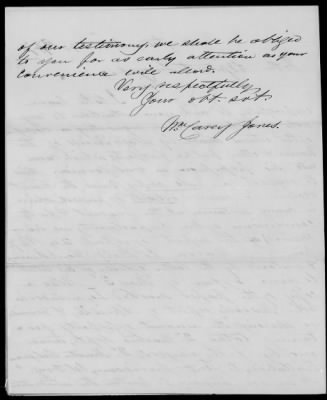 of our testimony, we shall be obliged
to you for as early attention as your
convenience will allow.
Very respectfully
Your obt. svt.
Wm Carey Jones.